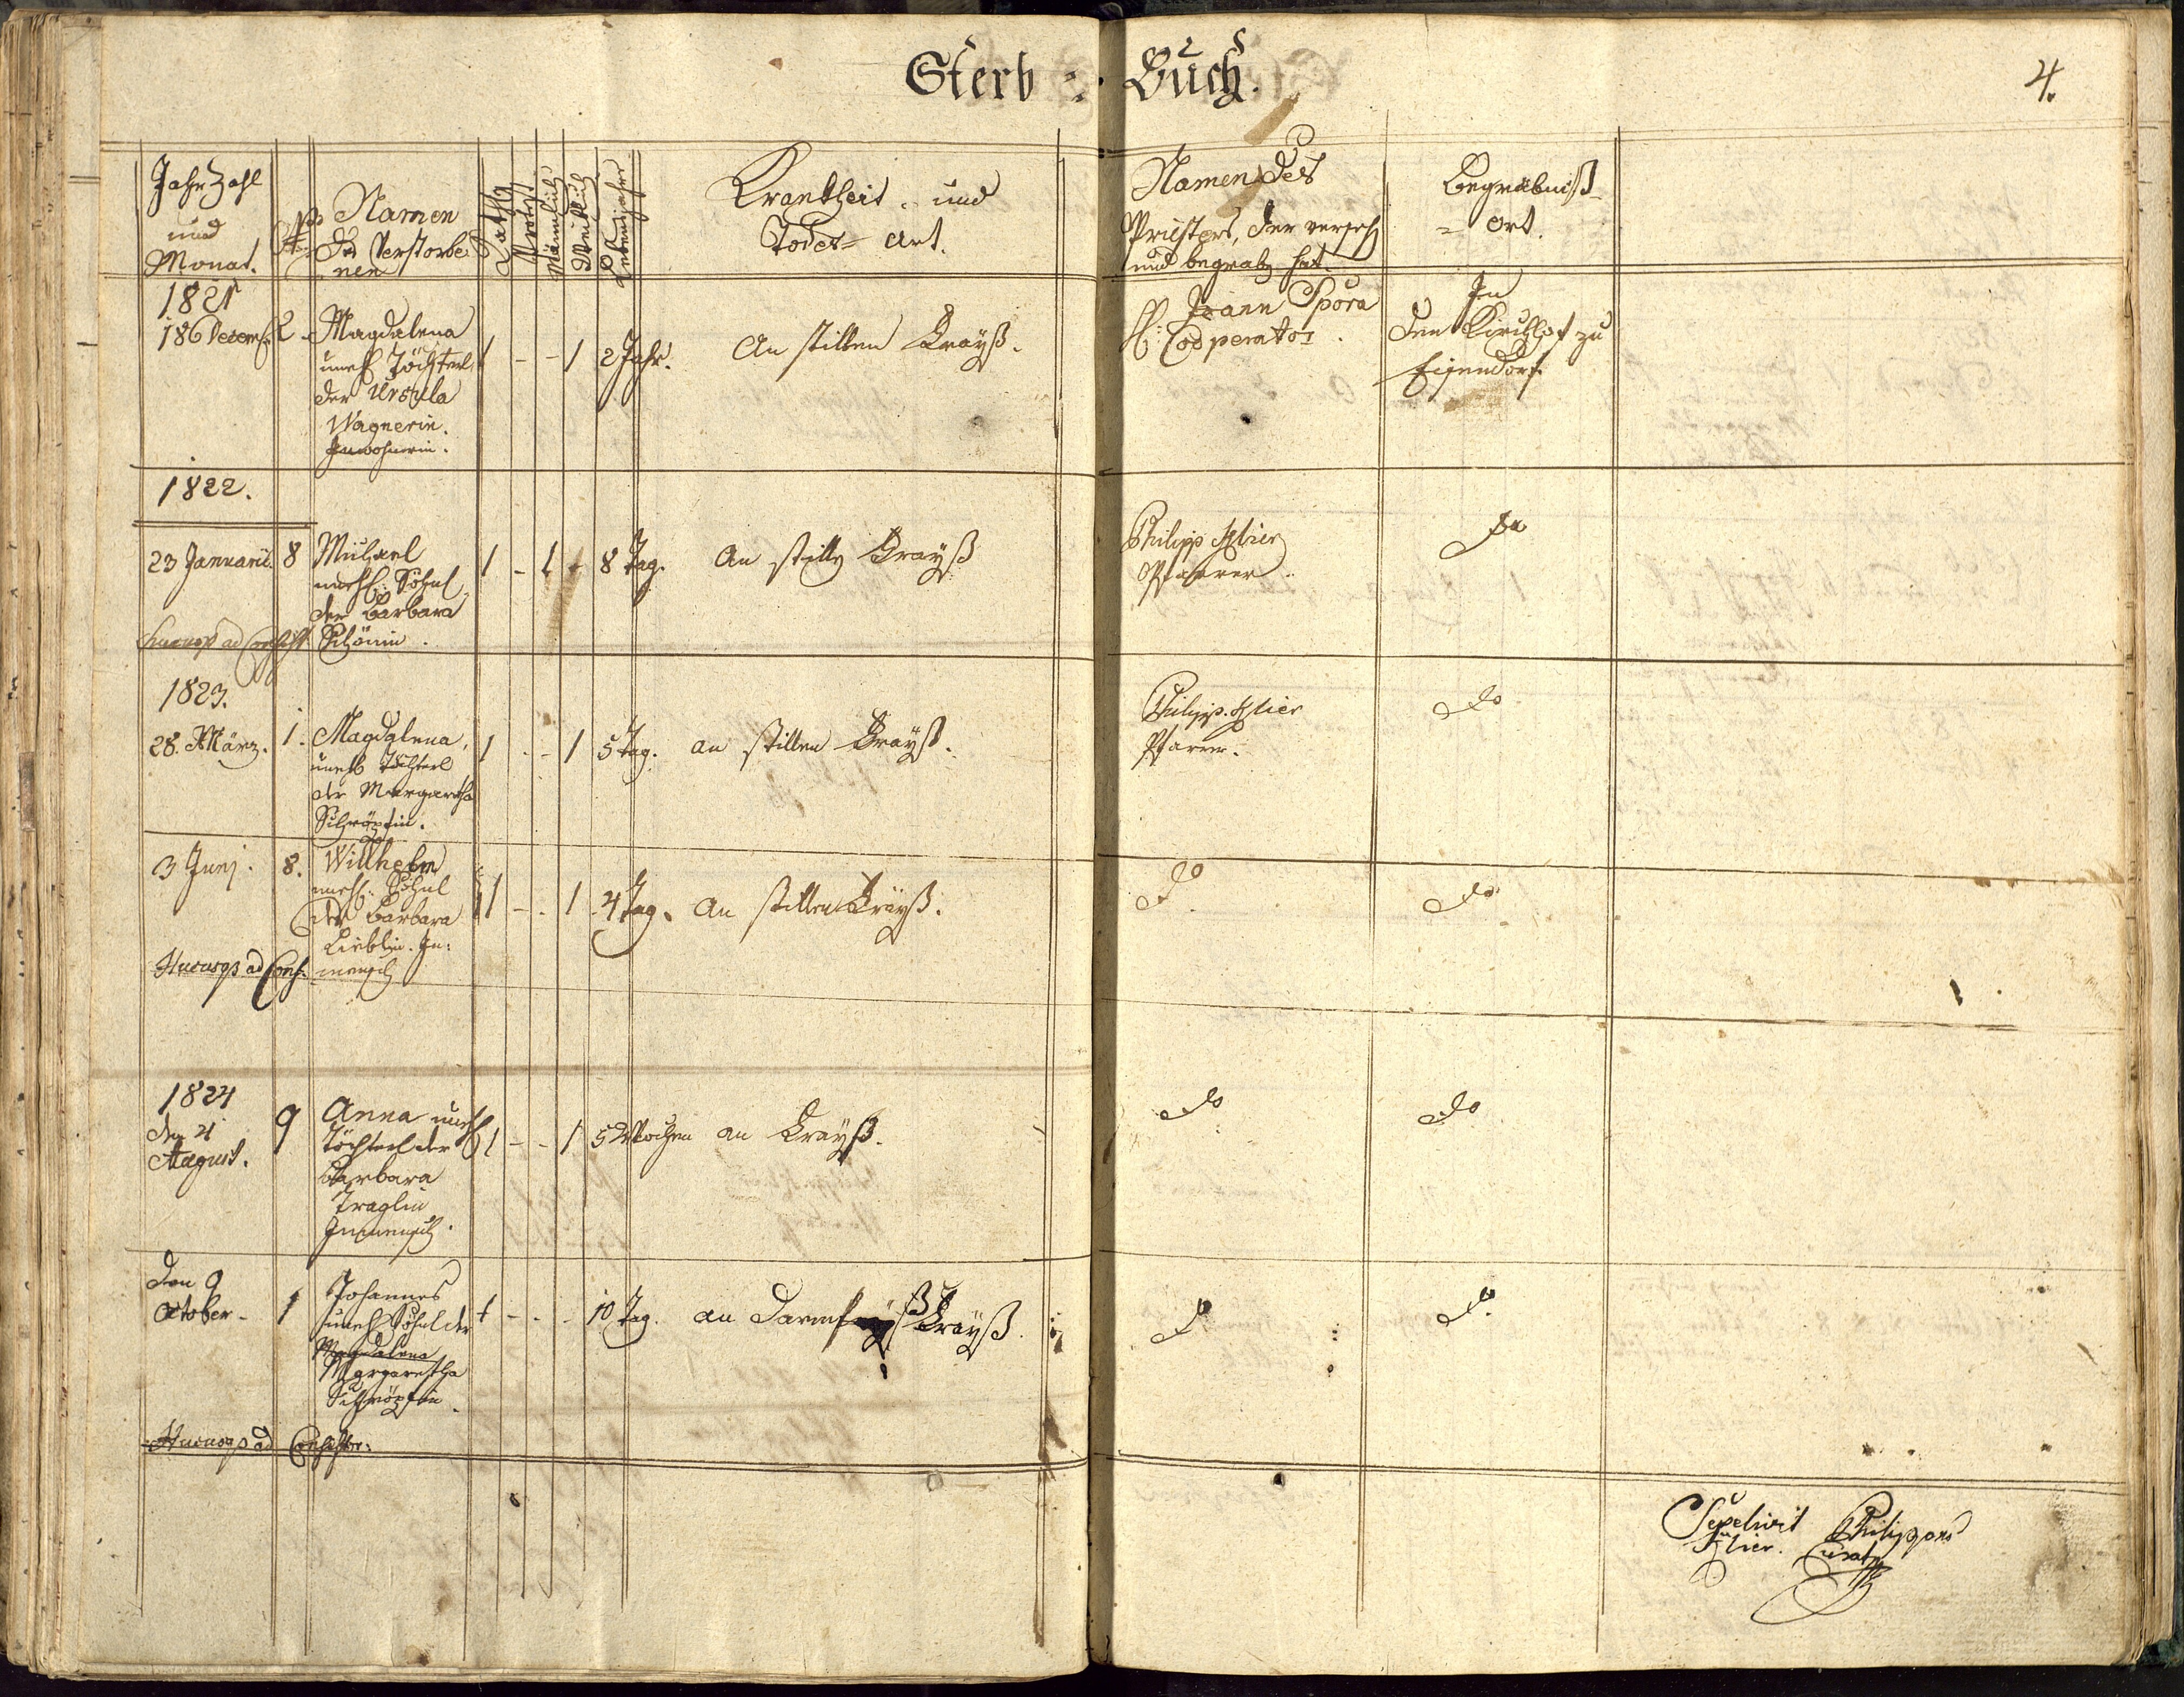 Sterb = Buch.
4.
Jahr Zahl
und
Monat.
Namen
der Verstorbe
nen
Kathol
Männlich
Weiblich
Lebensjahre
Krankheit = und
Todes = Art.
Namen des
Priesters, der verseh
und begrab hat.
Begräbniß
= Ort.
1821
186 Decemb 2
Magdalena
unehl Töchterl
der Ursula
Wagnerin.
Inwohnerin.
1 - - 1 2 Jahr.
An stillen Frayß.
Joann Spora
H: Cooperator.
In
den Kirchhof zu
1822.
23 Januarii. 8
Michael
unehl: Söhnl
der Barbara
Schönin.
1 - 1 - 8 Tag.
An stillen Frayß
Philipp
Pfarrer.
do
Hucusq ad Consist.
1823.
28. März. 1.
Magdalena,
unehl Töchterl
der Margaretha
Schröpfin.
1 - - 1 5 Tag.
an stillen Frayß.
Philipp.
Pfarrer.
do
3 Junj. 8.
Willhelm
unehl: Söhnl
der Barbara
Lieblin. In:
mensch
1 - . 1 4 Tag.
An stillen Frayß.
do
do
Hucusq ad Cons.
1824
den 21
August. 9
Anna unehl
Töchterl der
Barbara
Traglin
Inmensch.
1 - - 1 5 Wochen
an Frayß.
do
do
Den 9
October - 1
Johannes
unehl Söhnl der
Magdalena
Margaretha
Schröpfin.
1 - - - 10 Tag.
an Darmfrayß Frayß.
do
do
Hucusq ad Consistor:
Sepelivit Philippus